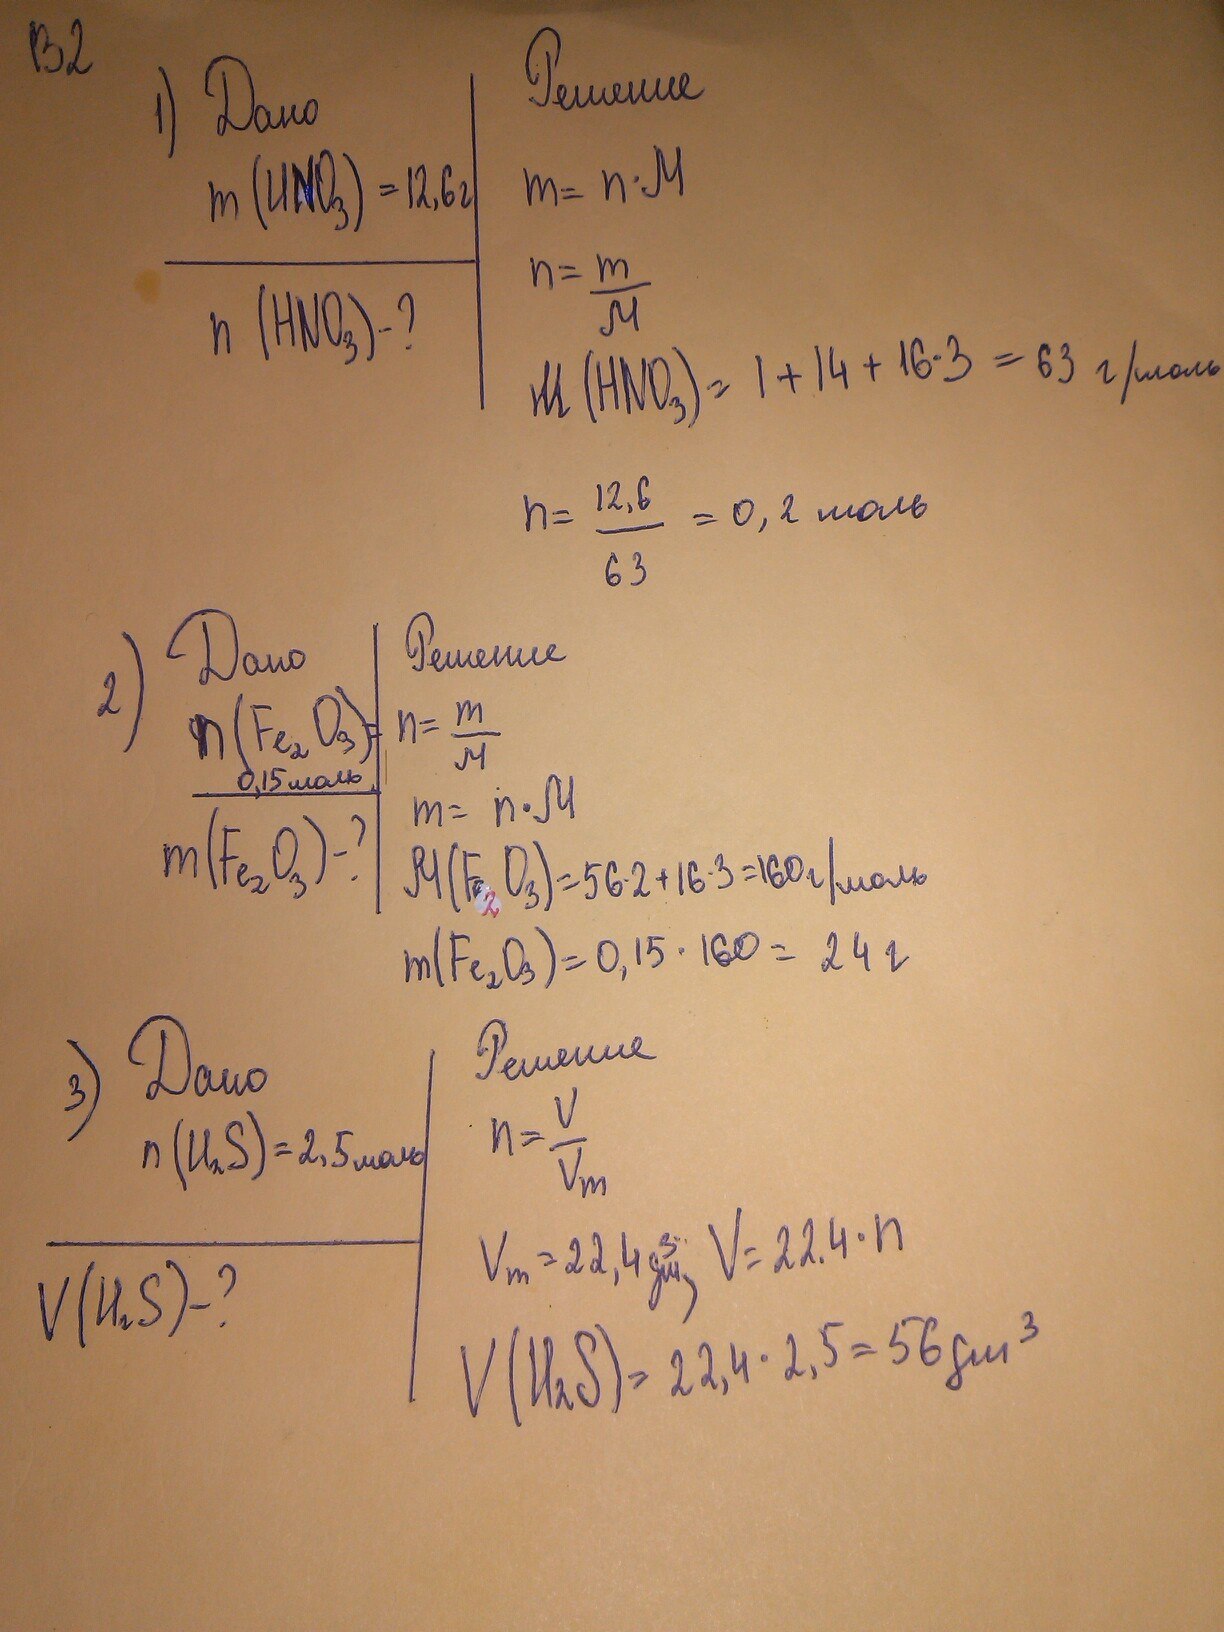 В2
1) Дано
m (HNO₃) = 12,6г
n (HNO₃) - ?
Решение
m = n·M
n = m/M
M (HNO₃) = 1 + 14 + 16·3 = 63 г/моль
n = 12,6/63 = 0,2 моль
2) Дано
n (Fe₂O₃) =
0,15 моль
m (Fe₂O₃) - ?
Решение
n = m/M
m = n·M
M (Fe₂O₃) = 56·2 + 16·3 = 160 г/моль
m (Fe₂O₃) = 0,15 · 160 = 24 г
3) Дано
n (H₂S) = 2,5 моль
V (H₂S) - ?
Решение
n = V/Vm
Vm = 22,4 дм³, V = 22.4 · n
V (H₂S) = 22,4 · 2,5 = 56 дм³